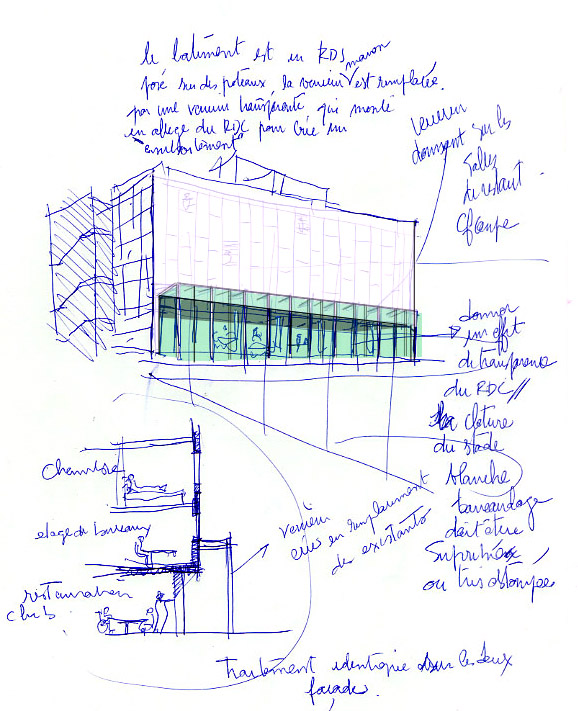 le batiment est en RDS maron
posé sur des poteaux, la verrieri est remplacée.
par une verrieri transparente qui monte
en allege du RDC pour crée un
"emboitement"
verrieri
donnant sur les
salles
restaurant
donner
un effet
de transparence
du RDC //
la cloture
du stade
blanche
doit être
Suprimée,
ou tres
Chambre
etage de bureaux
restauration
club.
verrieri
crées en remplacement
des existants
Traitement identique sur les deux
façades.